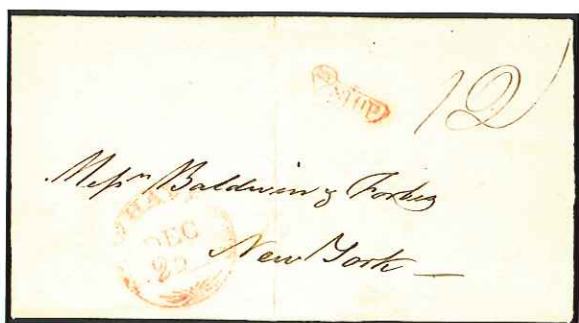 SHIP 12
Messrs Baldwin & Forbes
DEC
25
New York